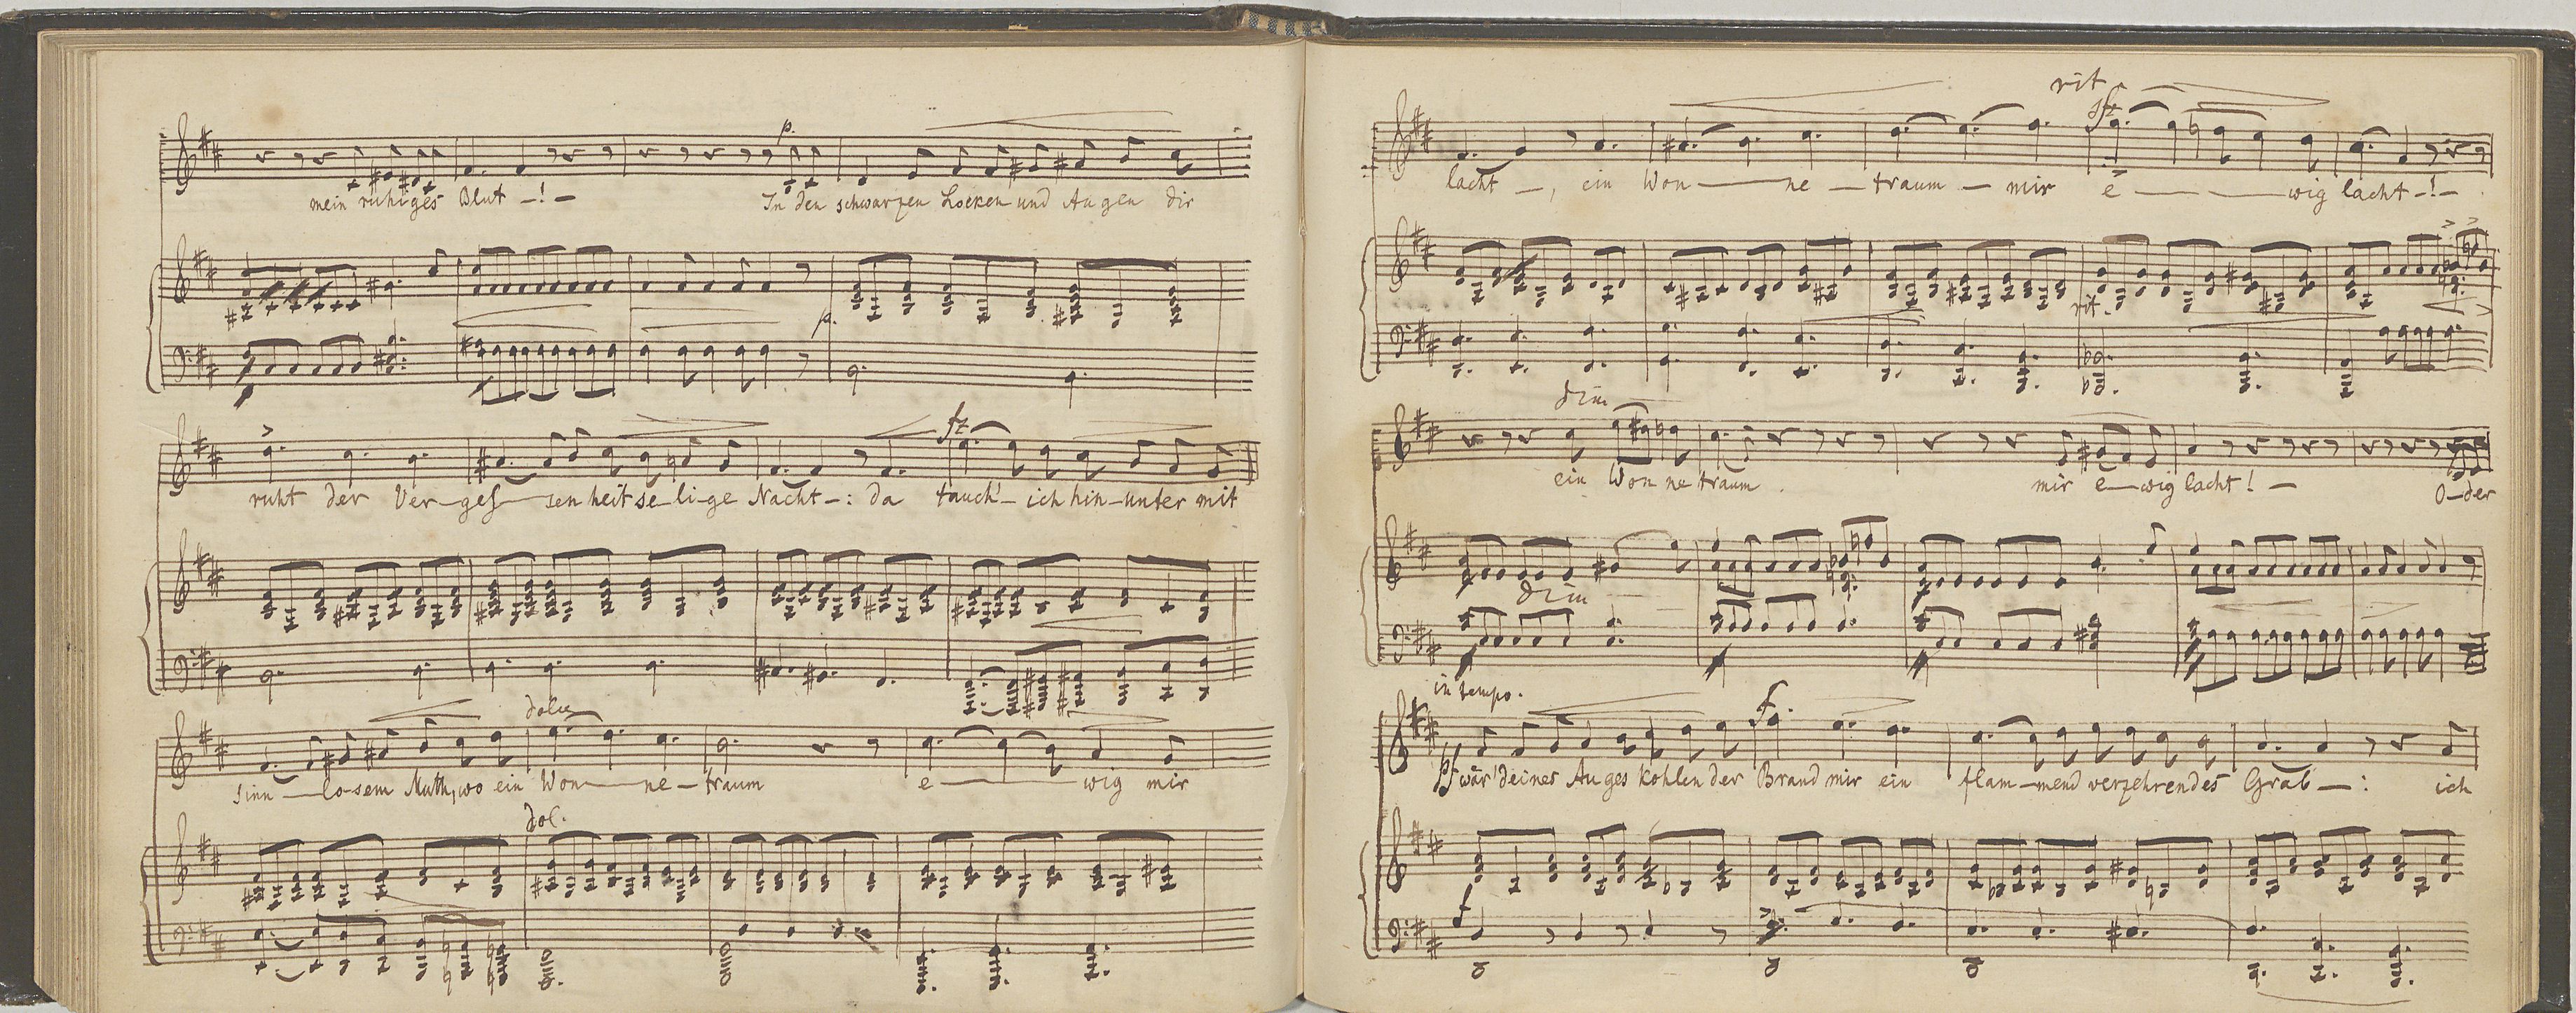 p.
mein ruhiges Blut -!- In den schwarzen Locken und Augen dir
p.
fz
ruht der Ver-ges-senheit se-li-ge Nacht-: da tauch'- ich hin-unter mit
dolce
sinn-lo-sem Muth, wo ein Won-ne-traum e-wig mir
dol.
rit
sfz
lacht-, ein Won-ne-traum-mir e-wig lacht-!-
rit.
dim
ein Won ne traum. mir e-wig lacht!- O-der
dim
in tempo.
f.
pf wär' deines Auges kohlen der Brand mir ein flam-mend verzehrendes Grab-: ich
f